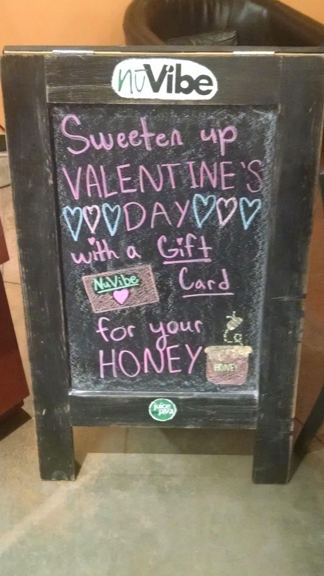 nüVibe
Sweeten up
VALENTINE'S
DAY
with a Gift
NuVibe Card
for your
HONEY
HONEY
juice java